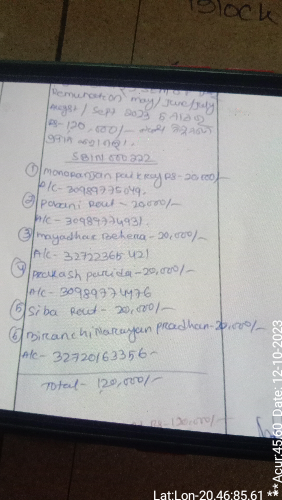 Block
Remuneration may/June/July
August/Sept 2023 5
RS-120,000/-
SBIN 000322
① manoranjan pattnay RS-20,000/-
A/c- 30989775049.
② Pabani Rout - 20000/-
A/c- 30989774931.
③ mayadhar Behera - 20,000/-
A/c- 32722365421
④ Prakash parida - 20,000/-
A/c- 30989774976
⑤ Siba Rout - 20,000/-
⑥ Biranchi Narayan pradhan - 20,000/-
A/c- 32720163356-
Total - 120,000/-
120,000/-
Lat:Lon-20.46:85.61
**Acur:45.60 Date: 12-10-2023